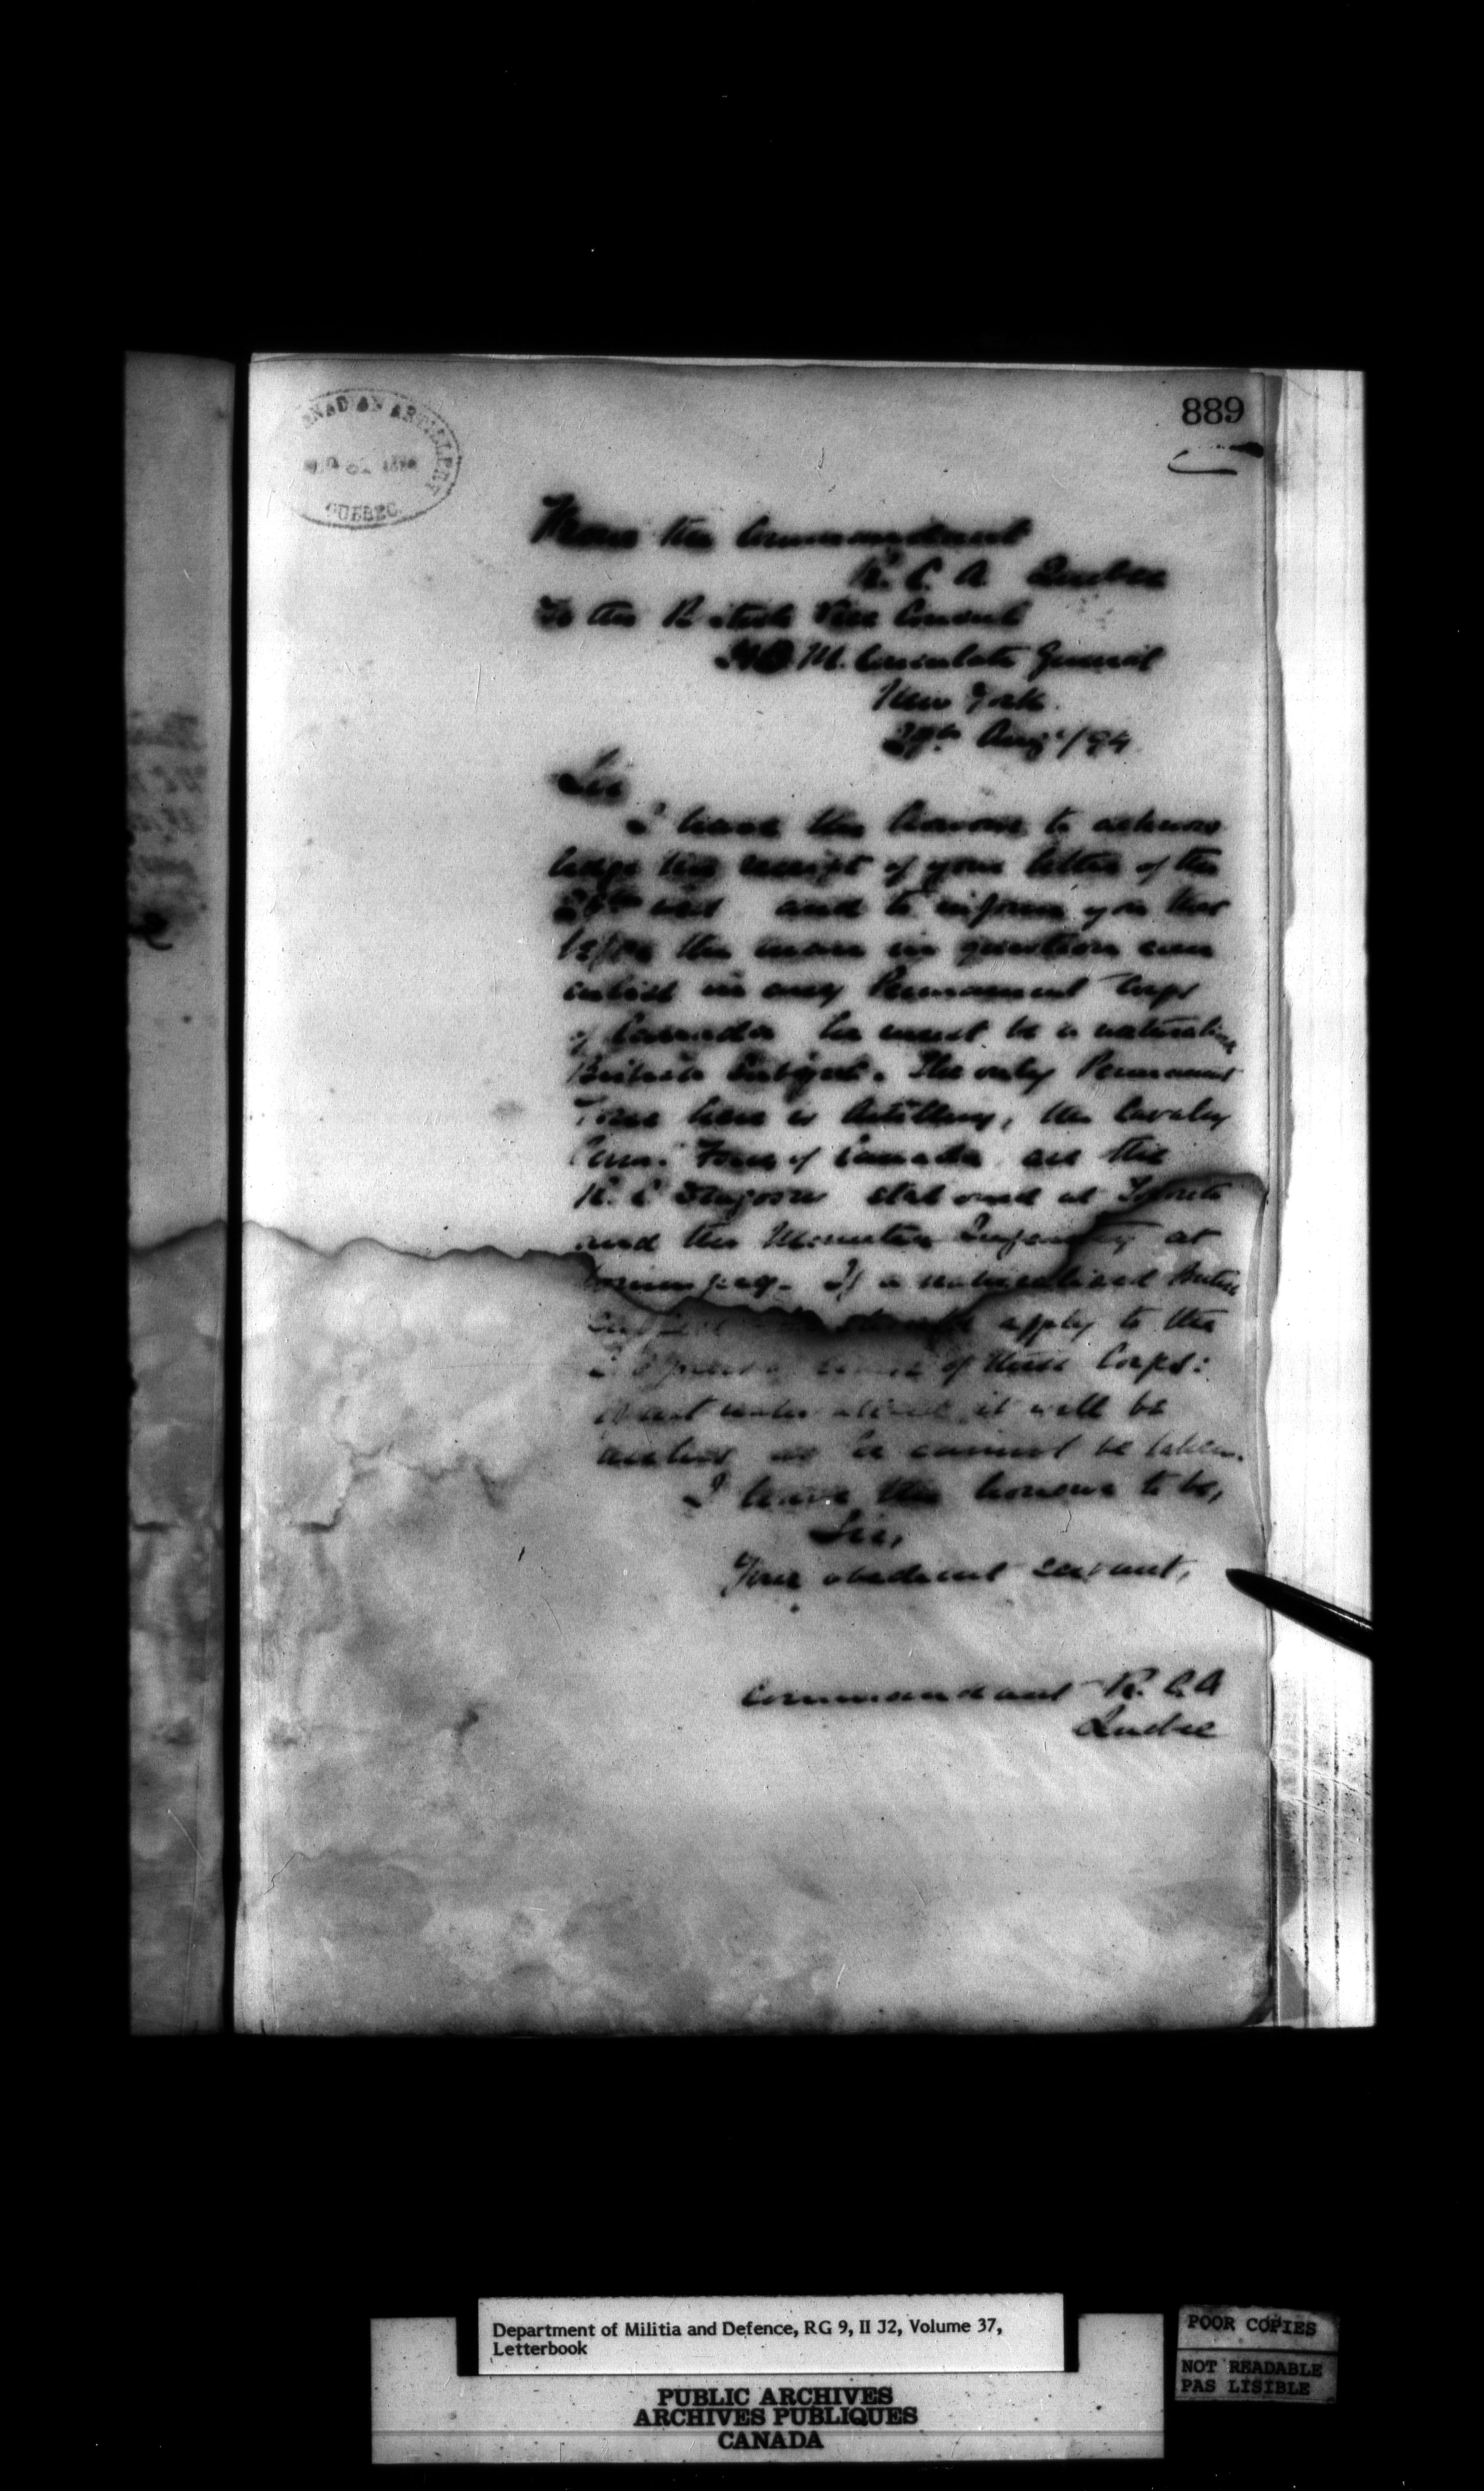 889
CANADIAN ARTILLERY
QUEBEC
From the Commandant
R. C. A. Quebec
To the British Vice Consul
H.B.M. Consulate General
New York.
Augt/94
Sir
I have the honour to acknow
ledge the receipt of your letter of the
and to inform you that
before the man in question can
enlist in any Permanent Corps
of Canada he must be a naturalized
British Subject. The only Permanent
Force here is Artillery, the Cavalry
Perm. Force of Canada are the
R. C. Dragoons stationed at Toronto
and the Mounted Infantry at
Winnipeg. If a naturalized British
Subject apply to the
of these Corps:
it will be
useless as he cannot be taken.
I have the honour to be,
Sir,
Your obedient servant,
Commandant R. C. A
Quebec
Department of Militia and Defence, RG 9, II J2, Volume 37,
Letterbook
PUBLIC ARCHIVES
ARCHIVES PUBLIQUES
CANADA
POOR COPIES
NOT READABLE
PAS LISIBLE